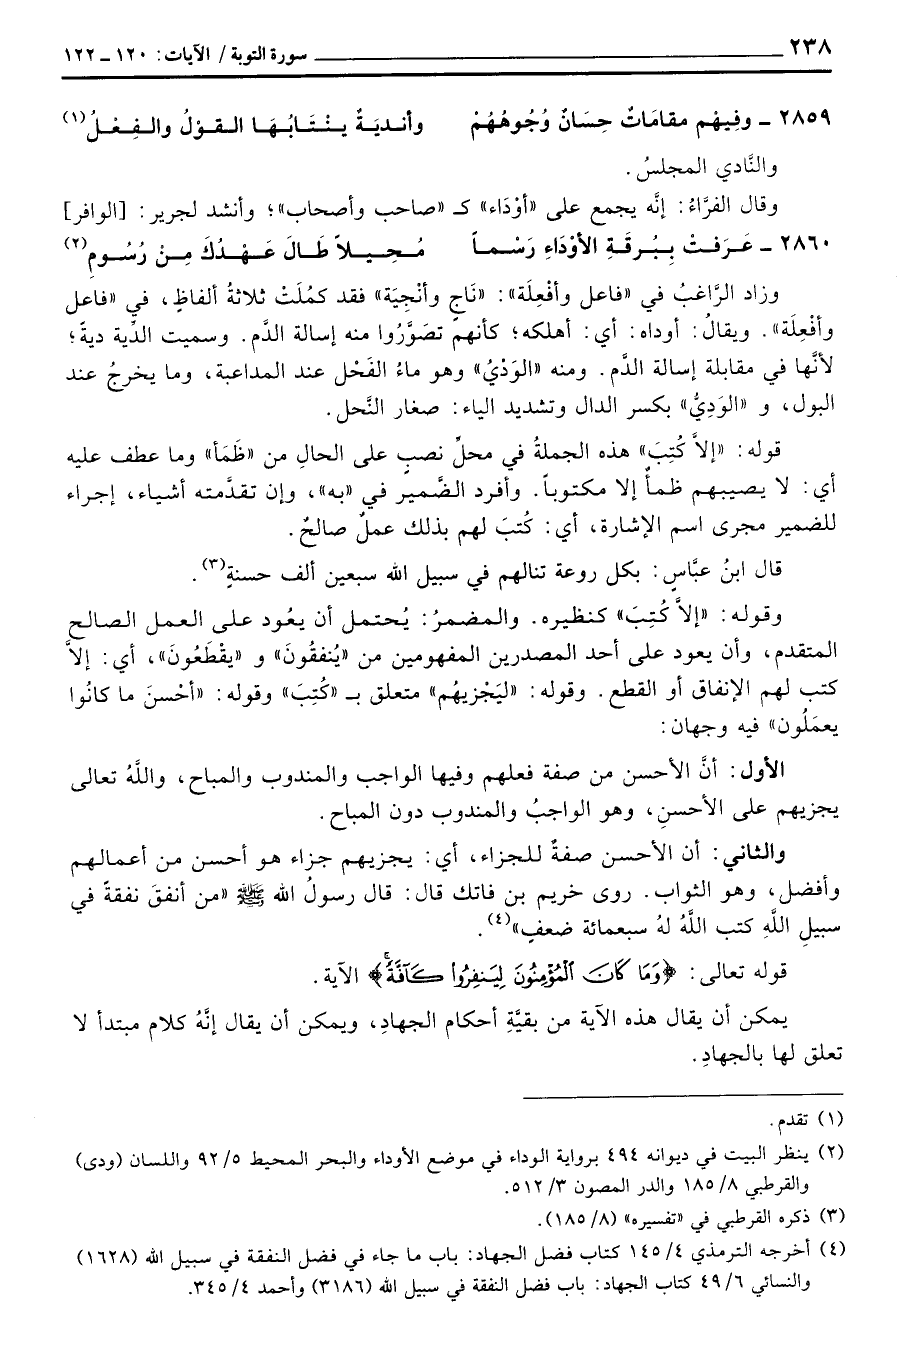 ٢٣٨ سورة التوبة / الآيات: ١٢٠ ـ ١٢٢
٢٨٥٩ ـ وفِيهِم مقامَاتٌ حِسَانٌ وُجُوهُهُمْ وأنديَةٌ يَنْتَابُهَا القوْلُ والفِعْلُ(١)
والنَّادي المجلسُ.
وقال الفرَّاءُ: إنَّه يجمع على «أوْدَاء» كـ «صاحب وأصحاب»؛ وأنشد لجرير: [الوافر]
٢٨٦٠ ـ عَرَفتْ بِبُرقَةِ الأوْدَاءِ رَسْماً مُحِيلاً طَالَ عَهْدُكَ مِنْ رُسُومِ(٢)
وزاد الرَّاغبُ في «فاعل وأفْعِلَة»: «نَاجٍ وأنْجِيَة» فقد كمُلَتْ ثلاثةُ ألفاظٍ، في «فاعل
وأفْعِلَة». ويقالُ: أوداه: أي: أهلكه؛ كأنهم تصَوَّرُوا منه إسالة الدَّم. وسميت الدِّية ديةً؛
لأنَّها في مقابلة إسالة الدَّم. ومنه «الوَدْيُ» وهو ماءُ الفَحْل عند المداعبة، وما يخرجُ عند
البول، و «الوَدِيُّ» بكسر الدال وتشديد الياء: صغار النَّحل.
قوله: «إلاَّ كُتِبَ» هذه الجملةُ في محلِّ نصبٍ على الحالِ من «ظَمَأ» وما عطف عليه
أي: لا يصيبهم ظمأٌ إلا مكتوباً. وأفرد الضَّمير في «به»، وإن تقدَّمته أشياء، إجراء
للضمير مجرى اسم الإشارة، أي: كُتبَ لهم بذلك عملٌ صالحٌ.
قال ابنُ عبَّاسٍ: بكل روعة تنالهم في سبيل الله سبعين ألف حسنةٍ(٣).
وقوله: «إلاَّ كُتِبَ» كنظيره. والمضمرُ: يُحتمل أن يعُود على العمل الصالح
المتقدم، وأن يعود على أحد المصدرين المفهومين من «يُنفقُونَ» و «يقْطَعُونَ»، أي: إلاَّ
كتب لهم الإنفاق أو القطع. وقوله: «ليَجْزيهُم» متعلق بـ «كُتِبَ» وقوله: «أحْسنَ ما كانُوا
يعمَلُون» فيه وجهان:
الأول: أنَّ الأحسن من صفة فعلهم وفيها الواجب والمندوب والمباح، واللَّهُ تعالى
يجزيهم على الأحسنِ، وهو الواجبُ والمندوب دون المباح.
والثاني: أن الأحسن صفةٌ للجزاء، أي: يجزيهم جزاء هو أحسن من أعمالهم
وأفضل، وهو الثواب. روى خريم بن فاتك قال: قال رسولُ الله ﷺ «من أنفقَ نفقةً في
سبيلِ اللَّهِ كتب اللَّهُ لهُ سبعمائة ضعفٍ»(٤).
قوله تعالى: ﴿وَمَا كَانَ الْمُؤْمِنُونَ لِيَنفِرُوا كَآفَّةً﴾ الآية.
يمكن أن يقال هذه الآية من بقيَّةِ أحكام الجهادِ، ويمكن أن يقال إنَّهُ كلام مبتدأ لا
تعلق لها بالجهادِ.
(١) تقدم.
(٢) ينظر البيت في ديوانه ٤٩٤ برواية الوداء في موضع الأوداء والبحر المحيط ٩٢/٥ واللسان (ودى)
والقرطبي ١٨٥/٨ والدر المصون ٥١٢/٣.
(٣) ذكره القرطبي في «تفسيره» (١٨٥/٨).
(٤) أخرجه الترمذي ١٤٥/٤ كتاب فضل الجهاد: باب ما جاء في فضل النفقة في سبيل الله (١٦٢٨)
والنسائي ٤٩/٦ كتاب الجهاد: باب فضل النفقة في سبيل الله (٣١٨٦) وأحمد ٣٤٥/٤.